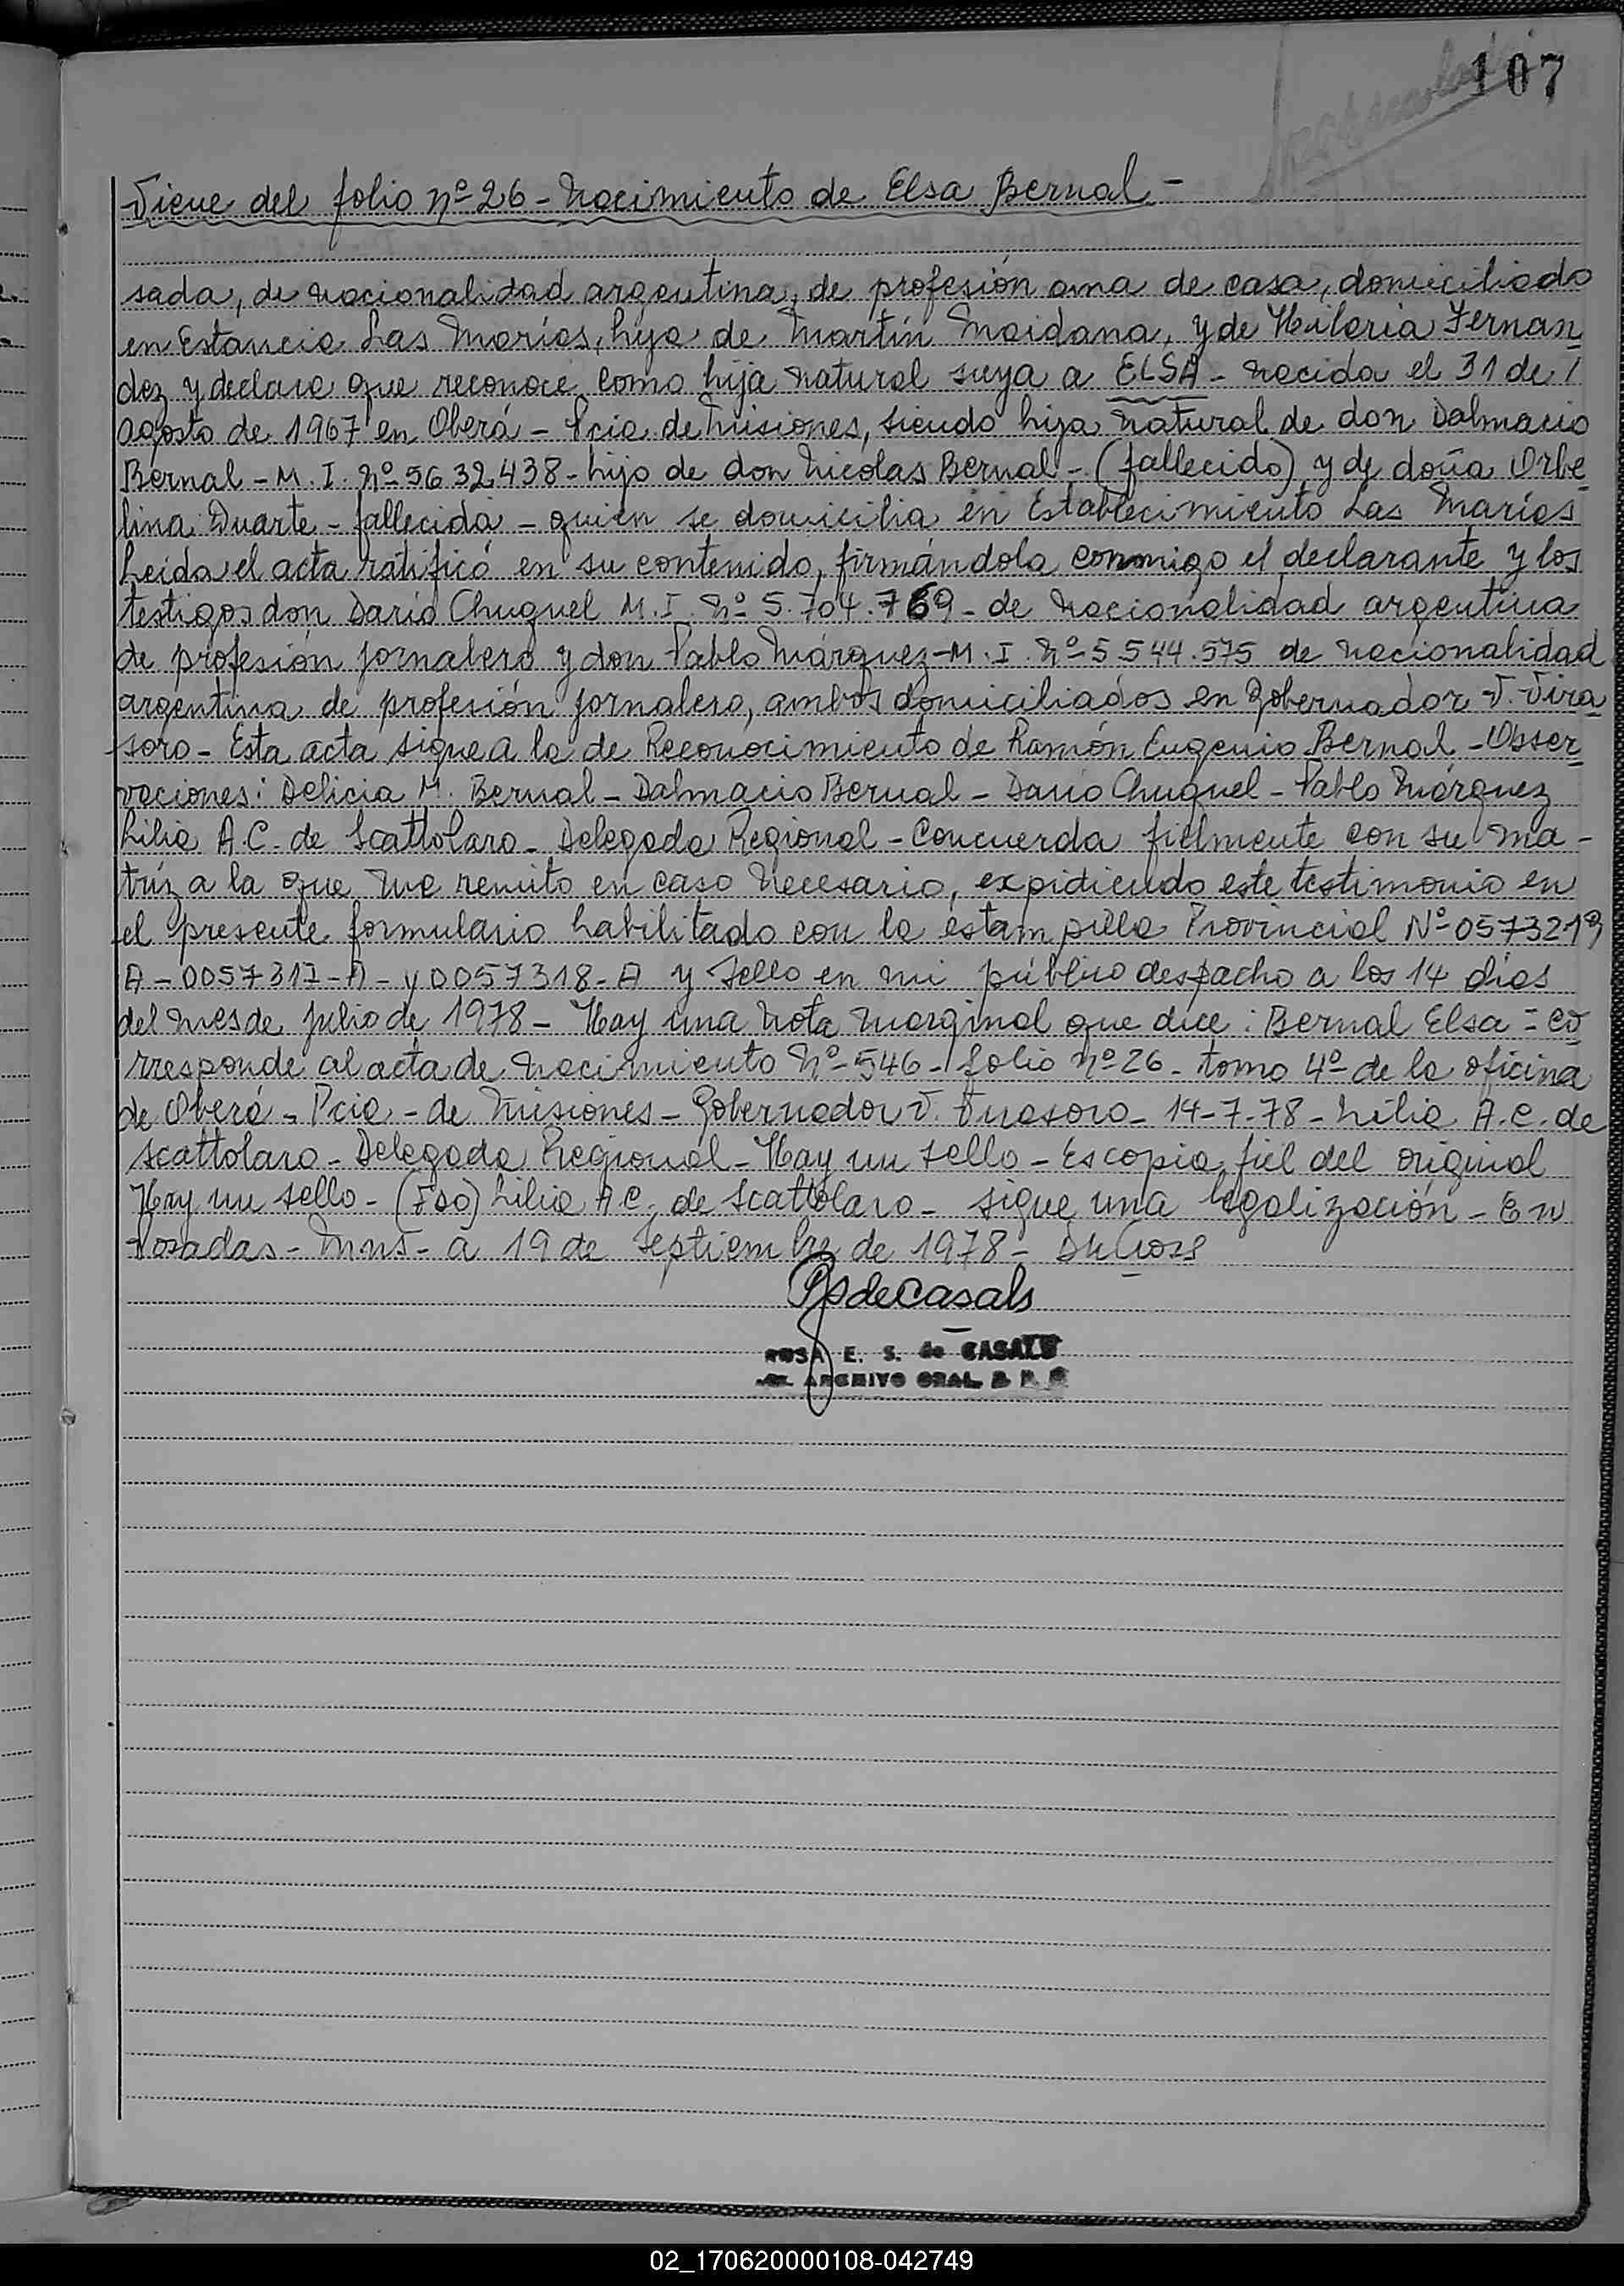 107
Viene del folio nº 26 - Nacimiento de Elsa Bernal -
sada, de nacionalidad argentina, de profesión ama de casa, domiciliada
en Estancia Las Marías, hija de Martín Maidana, y de Hilaria Fernan
dez y declara que reconoce como hija natural suya a ELSA - nacida el 31 de /
agosto de 1967 en Oberá - Pcia de Misiones, siendo hija natural de don Dalmacio
Bernal - M. I. Nº 5632438 - hijo de don Nicolas Bernal - (fallecido) y de doña Orbe
lina Duarte - fallecida - quien se domicilia en Establecimiento Las Marías
Leida el acta ratificó en su contenido, firmándola conmigo el declarante y los
testigos don Darío Chuquel M. I. Nº 5.704.769 - de nacionalidad argentina
de profesión jornalero y don Pablo Márquez - M. I. Nº 5544.575 de nacionalidad
argentina de profesión jornalero, ambos domiciliados en Gobernador V. Vira
soro - Esta acta sigue a la de Reconocimiento de Ramón Eugenio Bernal - Obser
vaciones: Delicia M. Bernal - Dalmacio Bernal - Darío Chuquel - Pablo Márquez
Lilia A. C. de Scattolaro - Delegada Regional - Concuerda fielmente con su ma -
tríz a la que me remito en caso necesario, expidiendo este testimonio en
el presente formulario habilitado con la estampilla Provincial Nº 0573219
A - 0057317 - A - y 0057318 - A y sello en mi público despacho a los 14 días
del mes de julio de 1978 - Hay una nota marginal que dice: Bernal Elsa = Co
rresponde al acta de nacimiento Nº 546 - folio nº 26 - tomo 4º de la oficina
de Oberá - Pcia - de Misiones - Gobernador V. Virasoro - 14-7-78 - Lilia A. C. de
Scattolaro - Delegada Regional - Hay un sello - Es copia fiel del original
Hay un sello - (Fdo) Lilia A. C. de Scattolaro - sigue una legalización - En
Posadas - Mnes - a 19 de Septiembre de 1978 -
RSdeCasals
ROSA E. S. de CASALS
ARCHIVO GRAL. R P
02_170620000108-042749